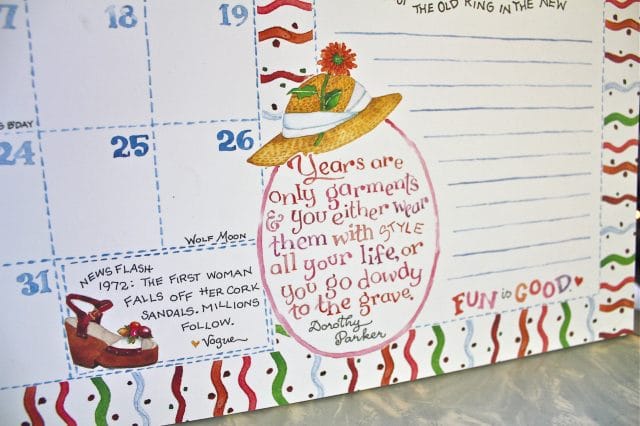 OF THE OLD RING IN THE NEW
17
18
19
S B'DAY
24
25
26
WOLF MOON
31
NEWS FLASH
1972: THE FIRST WOMAN
FALLS OFF HER CORK
SANDALS. MILLIONS
FOLLOW.
Vogue
Years are
only garments
& you either wear
them with STYLE
all your life, or
you go dowdy
to the grave.
Dorothy
Parker
FUN is GOOD.